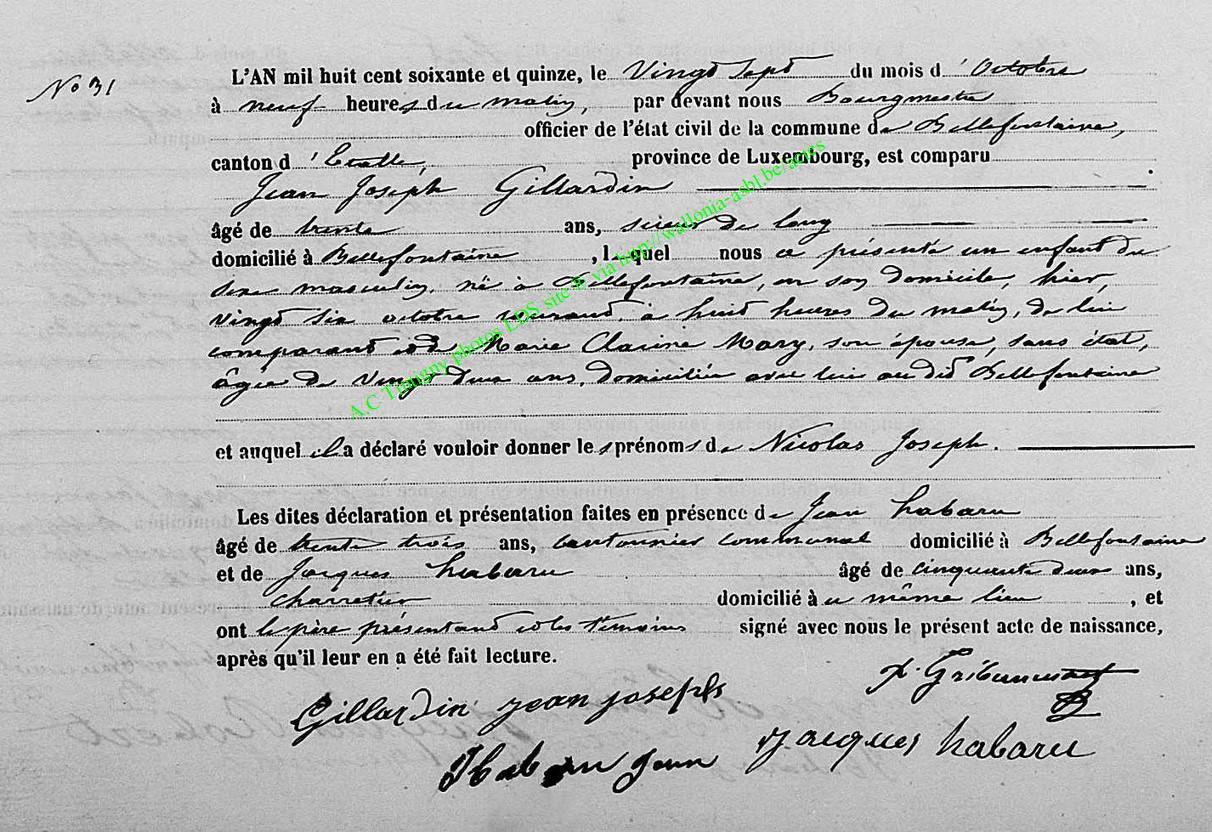 No 31
L'AN mil huit cent soixante et quinze, le Vingt Sept du mois d'Octobre
à neuf heures du matin, par devant nous Bourgmestre
officier de l'état civil de la commune de Bellefontaine,
canton d'Etalle, province de Luxembourg, est comparu
Jean Joseph Gillardin
âgé de trente ans, scieur de long
domicilié à Bellefontaine, lequel nous a présenté un enfant du
sexe masculin, né à Bellefontaine, en son domicile, hier,
vingt six octobre courant, à huit heures du matin, de lui
comparant et de Marie Clarine Mary, son épouse, sans état,
âgée de vingt deux ans, domiciliée avec lui audit Bellefontaine
et auquel il a déclaré vouloir donner les prénoms de Nicolas Joseph.
Les dites déclaration et présentation faites en présence de Jean habaru
âgé de trente trois ans, cantonnier communal domicilié à Bellefontaine
et de Jacques habaru âgé de cinquante deux ans,
charretier domicilié au même lieu, et
ont le père présentant et les témoins signé avec nous le présent acte de naissance,
après qu'il leur en a été fait lecture.
Gillardin jean joseph
Habaru jean
jacques habaru
A.C Tintigny photos LDS site & via http://wallonia-asbl.be/actes